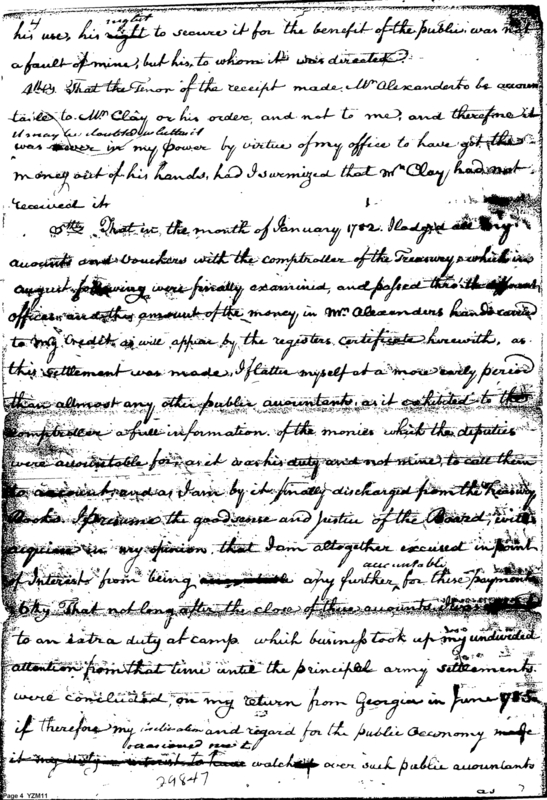 4 neglect
his use, his right to secure it for the benefit of the public was not
a fault of mine, but his, to whom it was directed?
4thly That the Tenor of the receipt made Mr Alexander to be accoun
table to Mr Clay or his order, and not to me, and therefore it
it may be doubted whether it
was never in my power by virtue of my office to have got the
money out of his hands, had I surmized that Mr Clay had not
received it
5thly That in the month of January 1782. I lodged all my
accounts and vouchers with the comptroller of the Treasury, which in
august following were finally examined, and passed thro the different
offices, and this amount of the money in Mr Alexanders hands carried
to my Credit, as will appear by the registers certificate herewith, as
this settlement was made, I flatter myself at a more early period
than allmost any other public accountants, as it exhibited to the
comptroller a full information of the monies which the deputies
were accountable for, as it was his duty and not mine, to call them
to account, and as I am by it finally discharged from the Treasury
Books. I presume the good sense and Justice of the Board, will
acquiesce in my opinion, that I am altogether excused in point
accountable
of Interest from being any further for these payments
6thly That not long after the close of these accounts
to an extra duty at camp which business took up my undivided
attention from that time until the principal army settlements
were concluded, on my return from Georgia in June 1785
if therefore my inclination and regard for the public Oeconomy made
occasioned me to
it my duty interest to have watched over such public accountants
29847
as
Page 4 YZM11